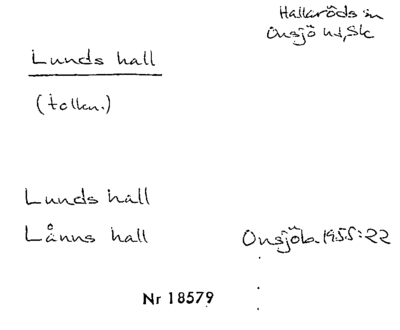 Hallaröds sn
Onsjö hd, Sk
Lunds hall
(tolkn.)
Lunds hall
Långs hall
Onsjöb. 1955:22
Nr 18579